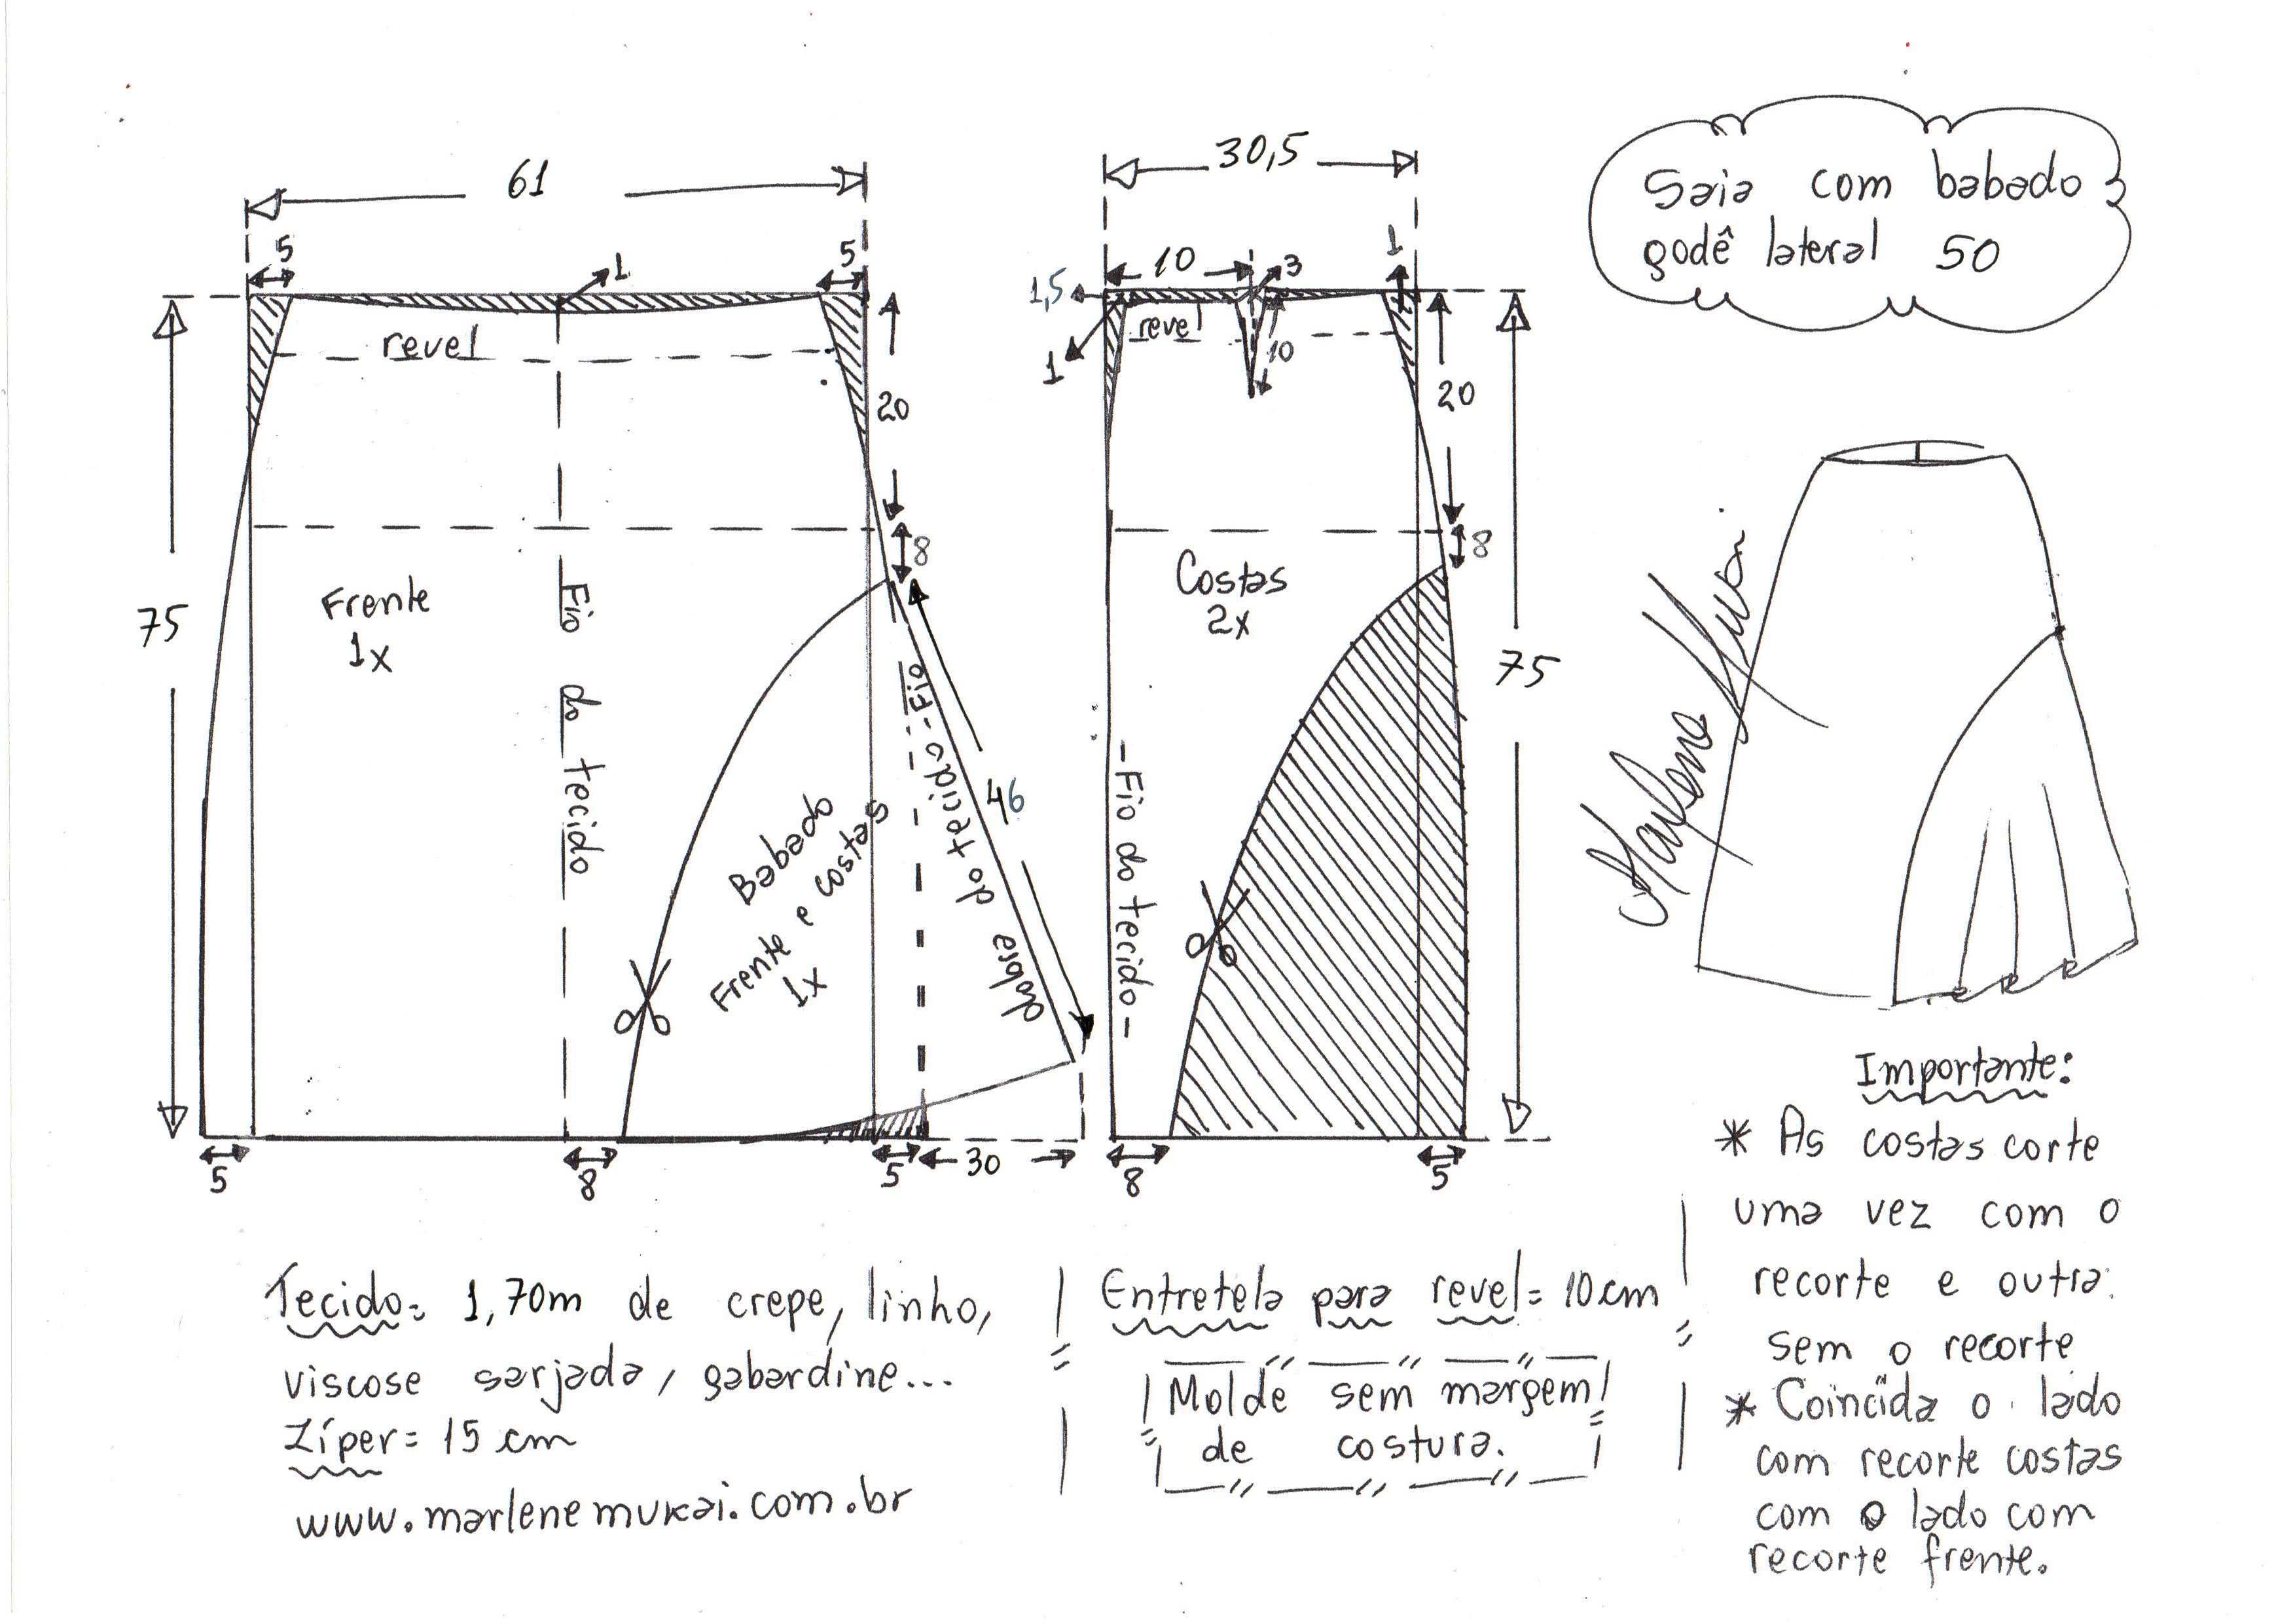 61
5
5
1
revel
20
8
75
Frente
1x
Fio do tecido
Fio do tecido
dobre
46
Babado
Frente e costas
1x
5
8
5
30
30,5
10
3
1
1,5
revel
10
1
20
8
Costas
2x
75
-Fio do tecido-
8
5
Saia com babado
godê lateral 50
Marlene Mukai
Importante:
* As costas corte
uma vez com o
recorte e outra
sem o recorte
* Coincida o lado
com recorte costas
com o lado com
recorte frente.
Tecido= 1,70m de crepe, linho,
viscose sarjada, gabardine...
Zíper= 15 cm
www.marlenemukai.com.br
Entretela para revel= 10 cm
Molde sem margem
de costura.